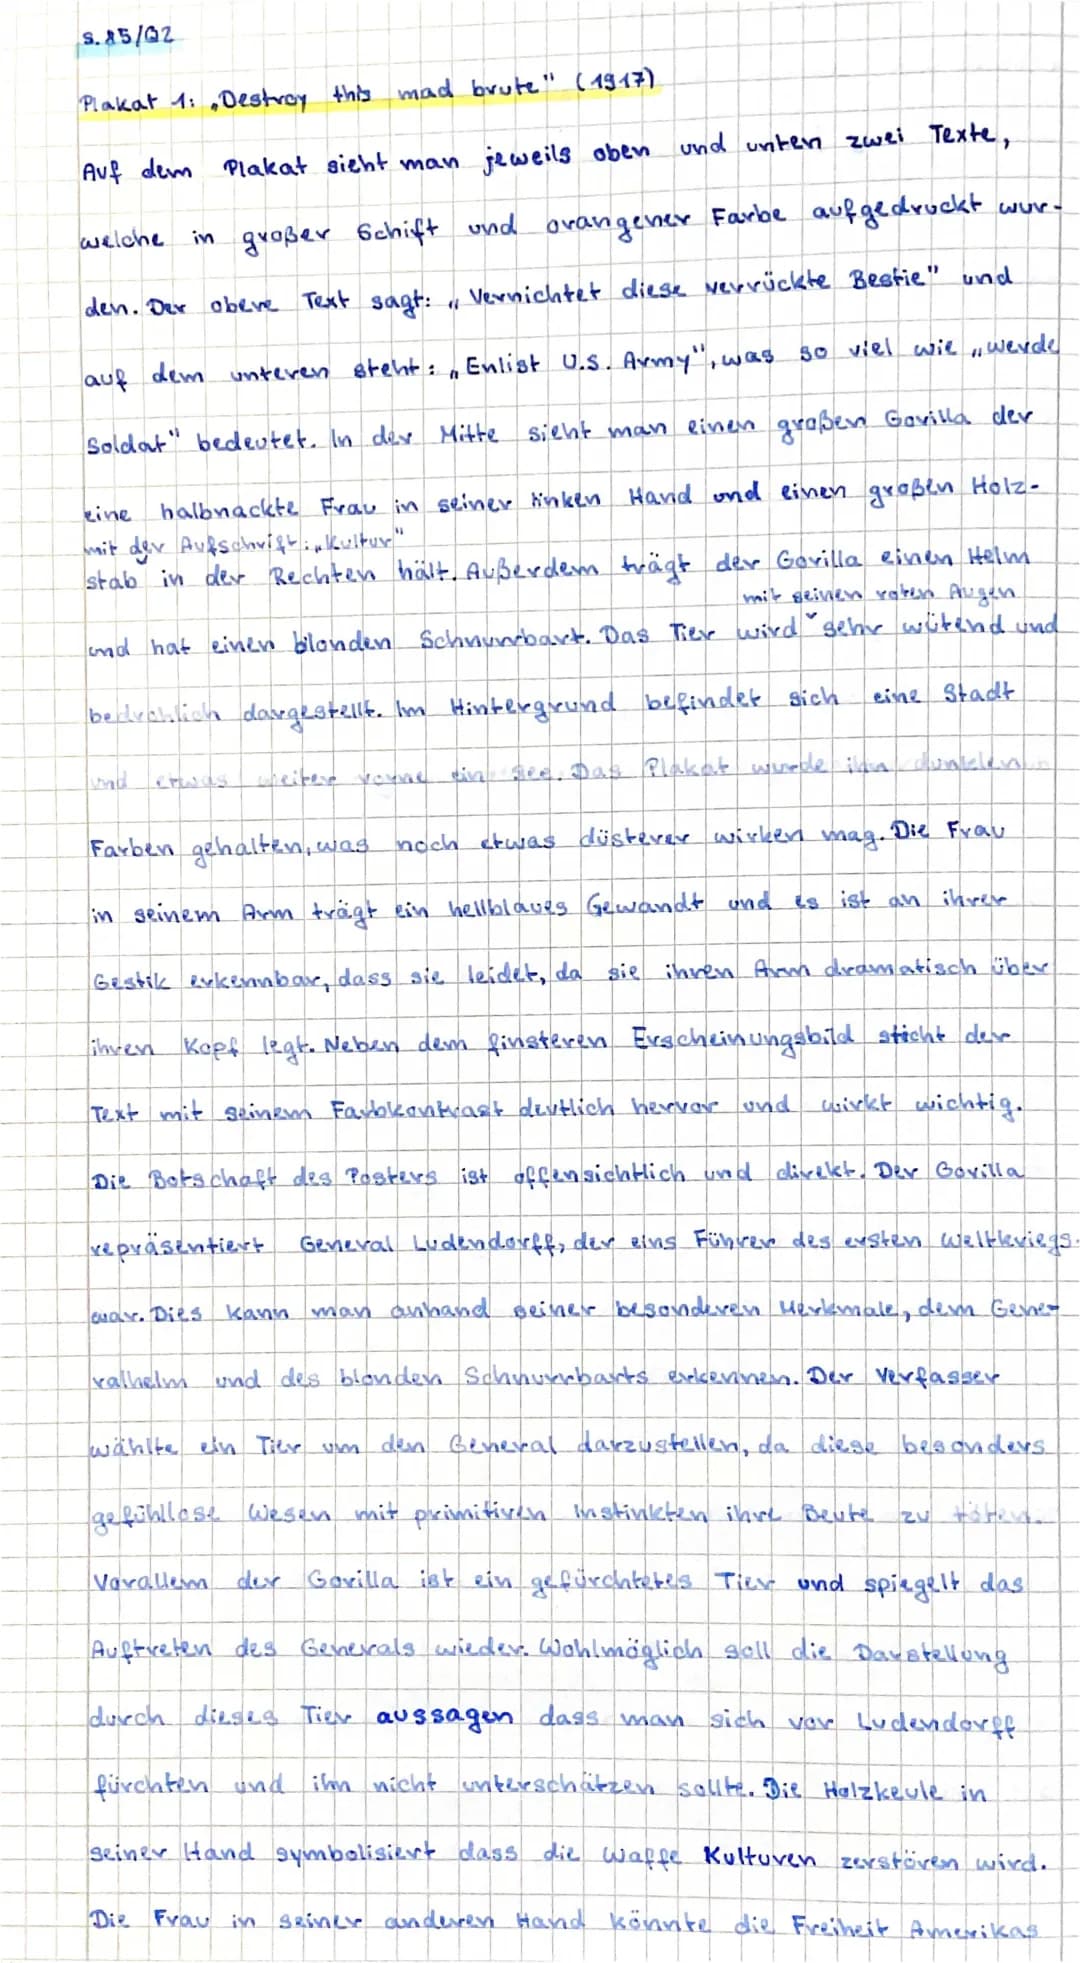 S. 85/Q2
Plakat 1: „Destroy this mad brute" (1917)
Auf dem Plakat sieht man jeweils oben und unten zwei Texte,
welche in großer Schift und orangener Farbe aufgedruckt wur-
den. Der obere Text sagt: „Vernichtet diese verrückte Bestie" und
auf dem unteren steht: „Enlist U.S. Army", was so viel wie „werde
Soldat" bedeutet. In der Mitte sieht man einen großen Gorilla der
eine halbnackte Frau in seiner linken Hand und einen großen Holz-
mit der Aufschrift: „Kultur"
stab in der Rechten hält. Außerdem trägt der Gorilla einen Helm
mit seinen roten Augen
und hat einen blonden Schnurrbart. Das Tier wird sehr wütend und
bedrohlich dargestellt. Im Hintergrund befindet sich eine Stadt
und etwas weiter vorne ein See. Das Plakat wurde ihn dunklen
Farben gehalten, was noch etwas düsterer wirken mag. Die Frau
in seinem Arm trägt ein hellblaues Gewandt und es ist an ihrer
Gestik erkennbar, dass sie leidet, da sie ihren Arm dramatisch über
ihren Kopf legt. Neben dem finsteren Erscheinungsbild sticht der
Text mit seinem Farbkontrast deutlich hervor und wirkt wichtig.
Die Botschaft des Posters ist offensichtlich und direkt. Der Gorilla
repräsentiert General Ludendorff, der eins Führer des ersten Weltkriegs
war. Dies kann man anhand seiner besonderen Merkmale, dem Gene-
ralhelm und des blonden Schnurrbarts erkennen. Der Verfasser
wählte ein Tier um den General darzustellen, da diese besonders
gefühllose Wesen mit primitiven Instinkten ihre Beute zu töten.
Vorallem der Gorilla ist ein gefürchtetes Tier und spiegelt das
Auftreten des Generals wieder. Wohlmöglich soll die Darstellung
durch dieses Tier aussagen dass man sich vor Ludendorff
fürchten und ihn nicht unterschätzen sollte. Die Holzkeule in
seiner Hand symbolisiert dass die Waffe Kulturen zerstören wird.
Die Frau in seiner anderen Hand könnte die Freiheit Amerikas